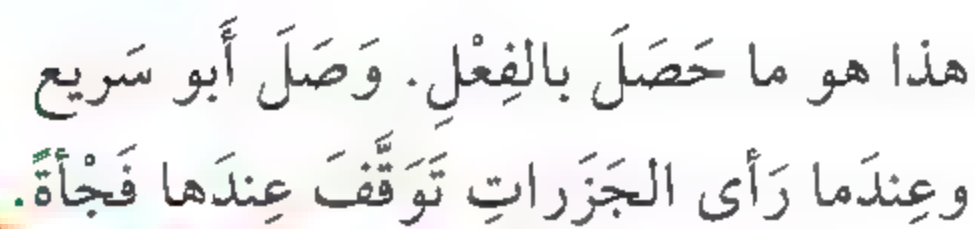 هذا هو ما حَصَلَ بالفِعْلِ. وَصَلَ أَبو سَريع
وعِندَما رَأى الجَزَراتِ تَوَقَّفَ عِندَها فَجْأَةً.